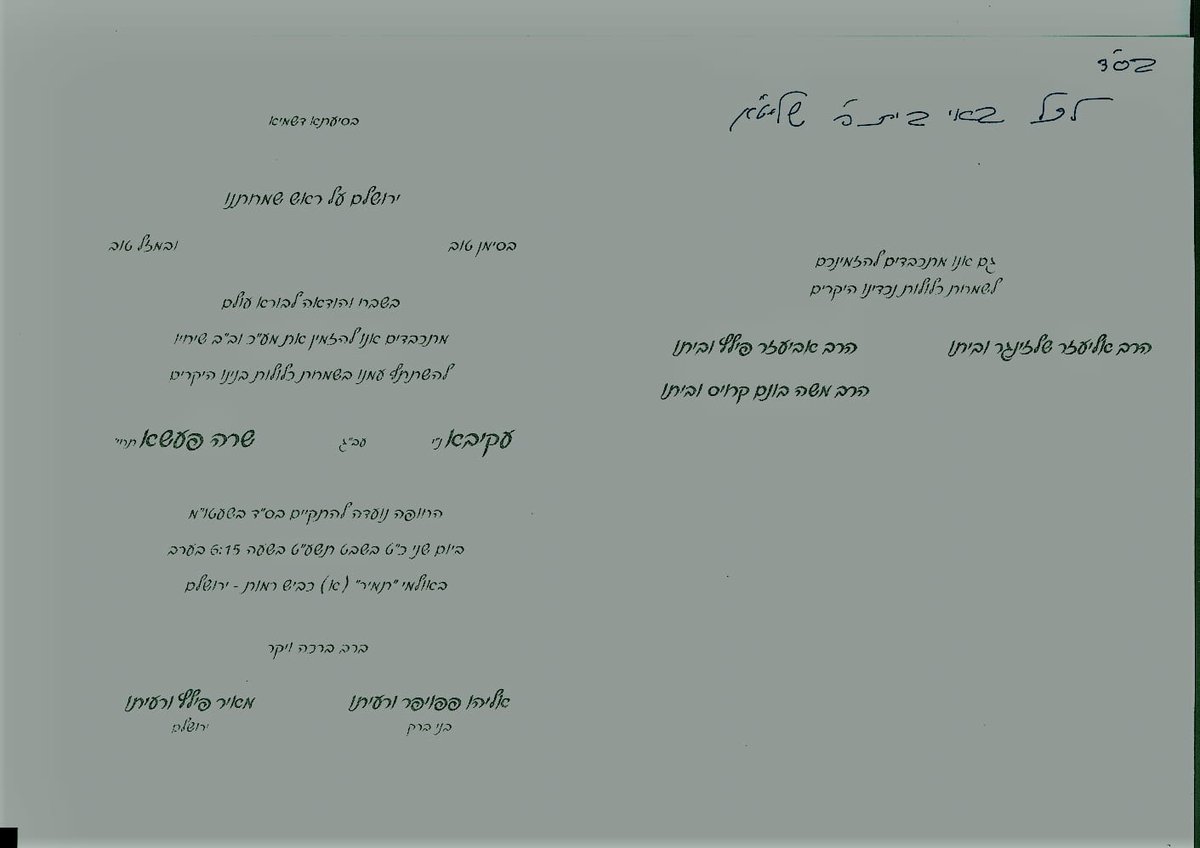 בס"ד
לכל באי ביתכ"ב שליט"א
גם אנו מתכבדים להזמינכם
לשמחת כלולות נכדינו היקרים
הרב אליעזר שלזינגר וביתו הרב אביעזר פילץ וביתו
הרב משה בונם קרויס וביתו
בסיעתא דשמיא
ירושלים על ראש שמחתנו
בסימן טוב ובמזל טוב
בשבח והודאה לבורא עולם
מתכבדים אנו להזמין את מע"כ וב"ב שיחיו
להשתתף עמנו בשמחת כלולות בנינו היקרים
עקיבא ני' עב"ג שרה פעשא תחי'
החופה נועדה להתקיים בס"ד בשעטו"מ
ביום שני כ"ט בשבט תשע"ט בשעה 6:15 בערב
באולמי "תמיר" (א) כביש רמות - ירושלים
ברב ברכה ויקר
אליהו פפויפר ורעיתו מאיר פילץ ורעיתו
בני ברק ירושלים